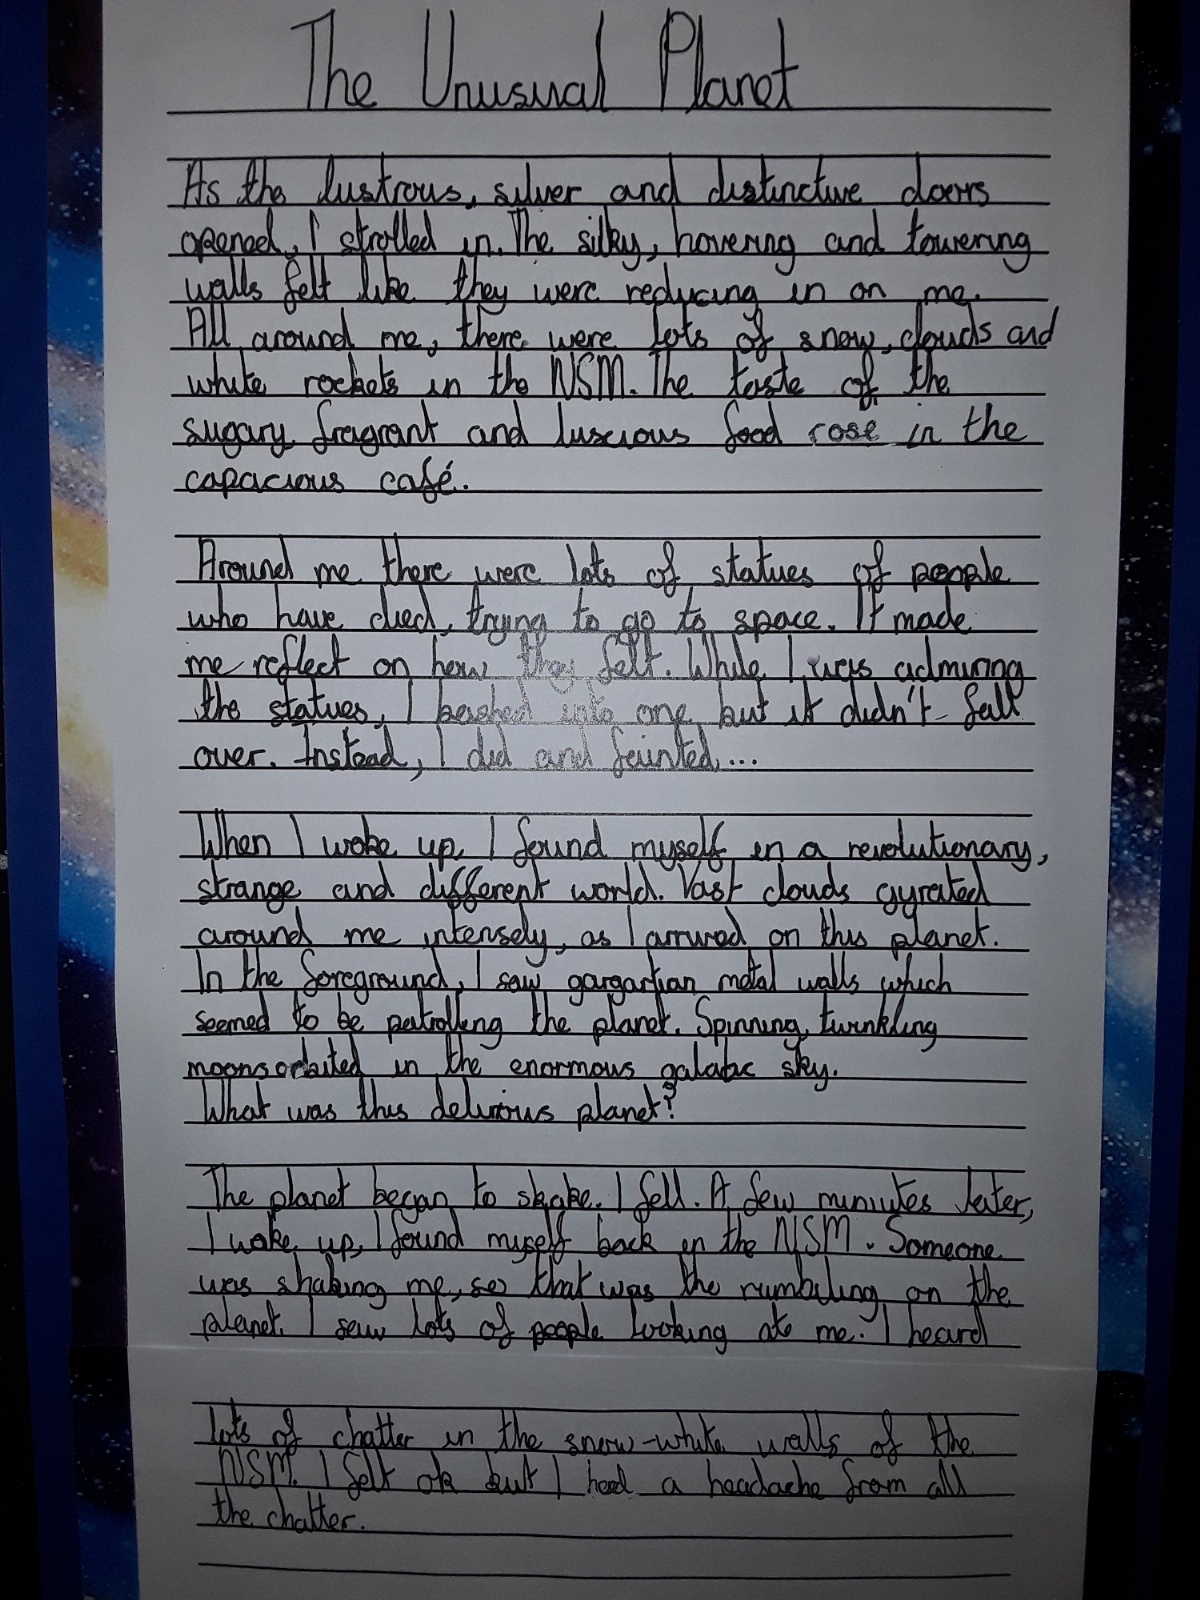 The Unusual Planet
As the lustrous, silver and distinctive doors
opened, I strolled in. The silky, hovering and towering
walls felt like they were reducing in on me.
All around me, there were lots of snow, clouds and
white rockets in the NSM. The taste of the
sugary, fragrant and luscious food rose in the
capacious café.
Around me there were lots of statues of people
who have died, trying to go to space. It made
me reflect on how they felt. While I was admiring
the statues, I bashed into one but it didn't fall
over. Instead, I did and fainted...
When I woke up, I found myself in a revolutionary,
strange and different world. Vast clouds gyrated
around me intensely, as I arrived on this planet.
In the foreground, I saw gargartian metal walls which
seemed to be patrolling the planet. Spinning, twinkling
moons orbited in the enormous galatic sky.
What was this delirious planet?
The planet began to shake. I fell. A few minutes later,
I woke up, I found myself back in the NSM. Someone
was shaking me, so that was the rumbling on the
planet. I saw lots of people looking at me. I heard
lots of chatter in the snow-white walls of the
NSM. I felt ok but I had a headache from all
the chatter.